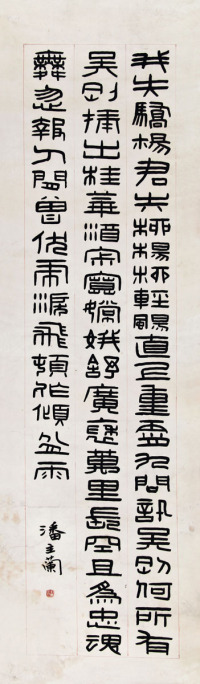 我失驕楊君失柳楊柳輕颺直上重霄九問訊吳剛何所有
吳剛捧出桂華酒寂寞嫦娥舒廣袖萬里長空且為忠魂
舞忽報人間曾伏虎淚飛頓作傾盆雨
潘主蘭